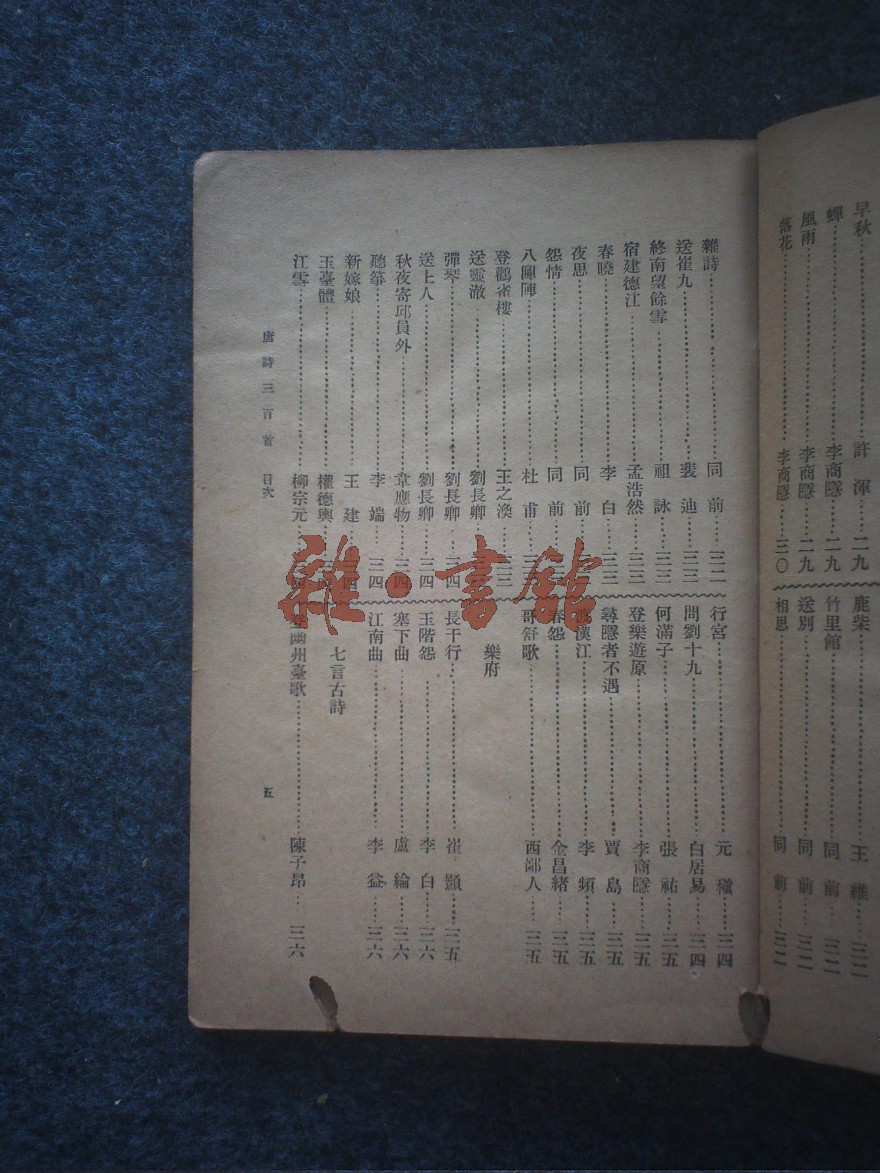 早秋……許渾……二九
蟬……李商隱……二九
風雨……李商隱……二九
落花……李商隱……三〇
鹿柴……王維……三二
竹里館……同前……三二
送別……同前……三二
相思……同前……三二
雜詩……同前……三二
送崔九……裴迪……三三
終南望餘雪……祖詠……三三
宿建德江……孟浩然……三三
春曉……李白……三三
夜思……同前……三三
怨情……同前
八圖陣……杜甫
登鸛雀樓……王之渙
送靈澈……劉長卿
彈琴……劉長卿……三四
送上人……劉長卿……三四
秋夜寄邱員外……韋應物……三四
聽箏……李端……三四
新嫁娘……王建
玉臺體……權德輿
江雪……柳宗元
行宮……元稹……三四
問劉十九……白居易……三四
何滿子……張祜……三五
登樂遊原……李商隱……三五
尋隱者不遇……賈島……三五
渡漢江……李頻……三五
春怨……金昌緒……三五
哥舒歌……西鄙人……三五
樂府
長干行……崔顥……三五
玉階怨……李白……三六
塞下曲……盧綸……三六
江南曲……李益……三六
七言古詩
登幽州臺歌……陳子昂……三六
唐詩三百首 目次
五
雜·書館